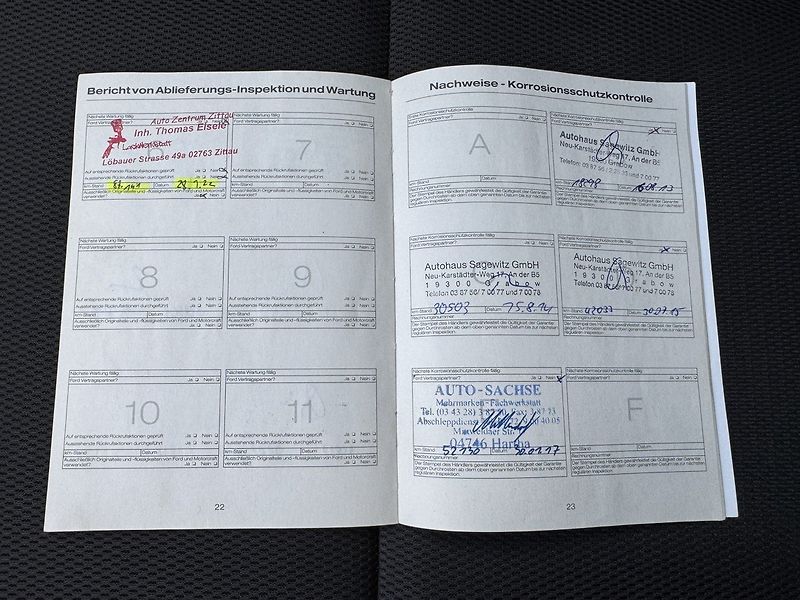 Bericht von Ablieferungs-Inspektion und Wartung
Nächste Wartung fällig
Ford Vertragspartner? Ja Nein
Auto Zentrum Zittau
Inh. Thomas Eisele
Löbauer Strasse 49a 02763 Zittau
Auf entsprechende Rückrufaktionen geprüft Ja Nein
Ausstehende Rückrufaktionen durchgeführt? Ja Nein
km-Stand Datum
Ausschließlich Originalteile und -flüssigkeiten von Ford und Motorcraft
verwendet? Ja Nein
Nächste Wartung fällig
Ford Vertragspartner? Ja Nein
7
Auf entsprechende Rückrufaktionen geprüft Ja Nein
Ausstehende Rückrufaktionen durchgeführt? Ja Nein
km-Stand Datum
Ausschließlich Originalteile und -flüssigkeiten von Ford und Motorcraft
verwendet? Ja Nein
Nächste Wartung fällig
Ford Vertragspartner? Ja Nein
8
Auf entsprechende Rückrufaktionen geprüft Ja Nein
Ausstehende Rückrufaktionen durchgeführt? Ja Nein
km-Stand Datum
Ausschließlich Originalteile und -flüssigkeiten von Ford und Motorcraft
verwendet? Ja Nein
Nächste Wartung fällig
Ford Vertragspartner? Ja Nein
9
Auf entsprechende Rückrufaktionen geprüft Ja Nein
Ausstehende Rückrufaktionen durchgeführt? Ja Nein
km-Stand Datum
Ausschließlich Originalteile und -flüssigkeiten von Ford und Motorcraft
verwendet? Ja Nein
Nächste Wartung fällig
Ford Vertragspartner? Ja Nein
10
Auf entsprechende Rückrufaktionen geprüft Ja Nein
Ausstehende Rückrufaktionen durchgeführt? Ja Nein
km-Stand Datum
Ausschließlich Originalteile und -flüssigkeiten von Ford und Motorcraft
verwendet? Ja Nein
Nächste Wartung fällig
Ford Vertragspartner? Ja Nein
11
Auf entsprechende Rückrufaktionen geprüft Ja Nein
Ausstehende Rückrufaktionen durchgeführt? Ja Nein
km-Stand Datum
Ausschließlich Originalteile und -flüssigkeiten von Ford und Motorcraft
verwendet? Ja Nein
22
Nachweise - Korrosionsschutzkontrolle
Nächste Korrosionsschutzkontrolle fällig
Ford Vertragspartner? Ja Nein
A
km-Stand Datum
Rechnungsnummer
Der Stempel des Händlers gewährleistet die Gültigkeit der Garantie
gegen Durchrosten ab dem oben genannten Datum bis zur nächsten
regulären Inspektion.
Nächste Korrosionsschutzkontrolle fällig
Ford Vertragspartner? Nein
Autohaus Sagewitz GmbH
Neu-Karstädter-Weg 17, An der B5
19300 Grabow
Rechnungsnummer
Der Stempel des Händlers gewährleistet die Gültigkeit der Garantie
gegen Durchrosten ab dem oben genannten Datum bis zur nächsten
regulären Inspektion.
Nächste Korrosionsschutzkontrolle fällig
Ford Vertragspartner? Ja Nein
Autohaus Sagewitz GmbH
Neu-Karstädter-Weg 17, An der B5
19300 Grabow
Telefon 03 87 56/7 06 77 und 7 00 78
km-Stand 30503 Datum 15.8.14
Rechnungsnummer
Der Stempel des Händlers gewährleistet die Gültigkeit der Garantie
gegen Durchrosten ab dem oben genannten Datum bis zur nächsten
regulären Inspektion.
Nächste Korrosionsschutzkontrolle fällig
Ford Vertragspartner? Nein
Autohaus Sagewitz GmbH
Neu-Karstädter-Weg 17, An der B5
19300 Grabow
km-Stand Datum 30.07.15
Rechnungsnummer
Der Stempel des Händlers gewährleistet die Gültigkeit der Garantie
gegen Durchrosten ab dem oben genannten Datum bis zur nächsten
regulären Inspektion.
Nächste Korrosionsschutzkontrolle fällig
Ford Vertragspartner? Ja Nein
AUTO-SACHSE
Mehrmarken-Fachwerkstatt
Abschleppdienst
04746 Hartha
km-Stand 52130 Datum
Rechnungsnummer
Der Stempel des Händlers gewährleistet die Gültigkeit der Garantie
gegen Durchrosten ab dem oben genannten Datum bis zur nächsten
regulären Inspektion.
Nächste Korrosionsschutzkontrolle fällig
Ford Vertragspartner? Ja Nein
F
km-Stand Datum
Rechnungsnummer
Der Stempel des Händlers gewährleistet die Gültigkeit der Garantie
gegen Durchrosten ab dem oben genannten Datum bis zur nächsten
regulären Inspektion.
23